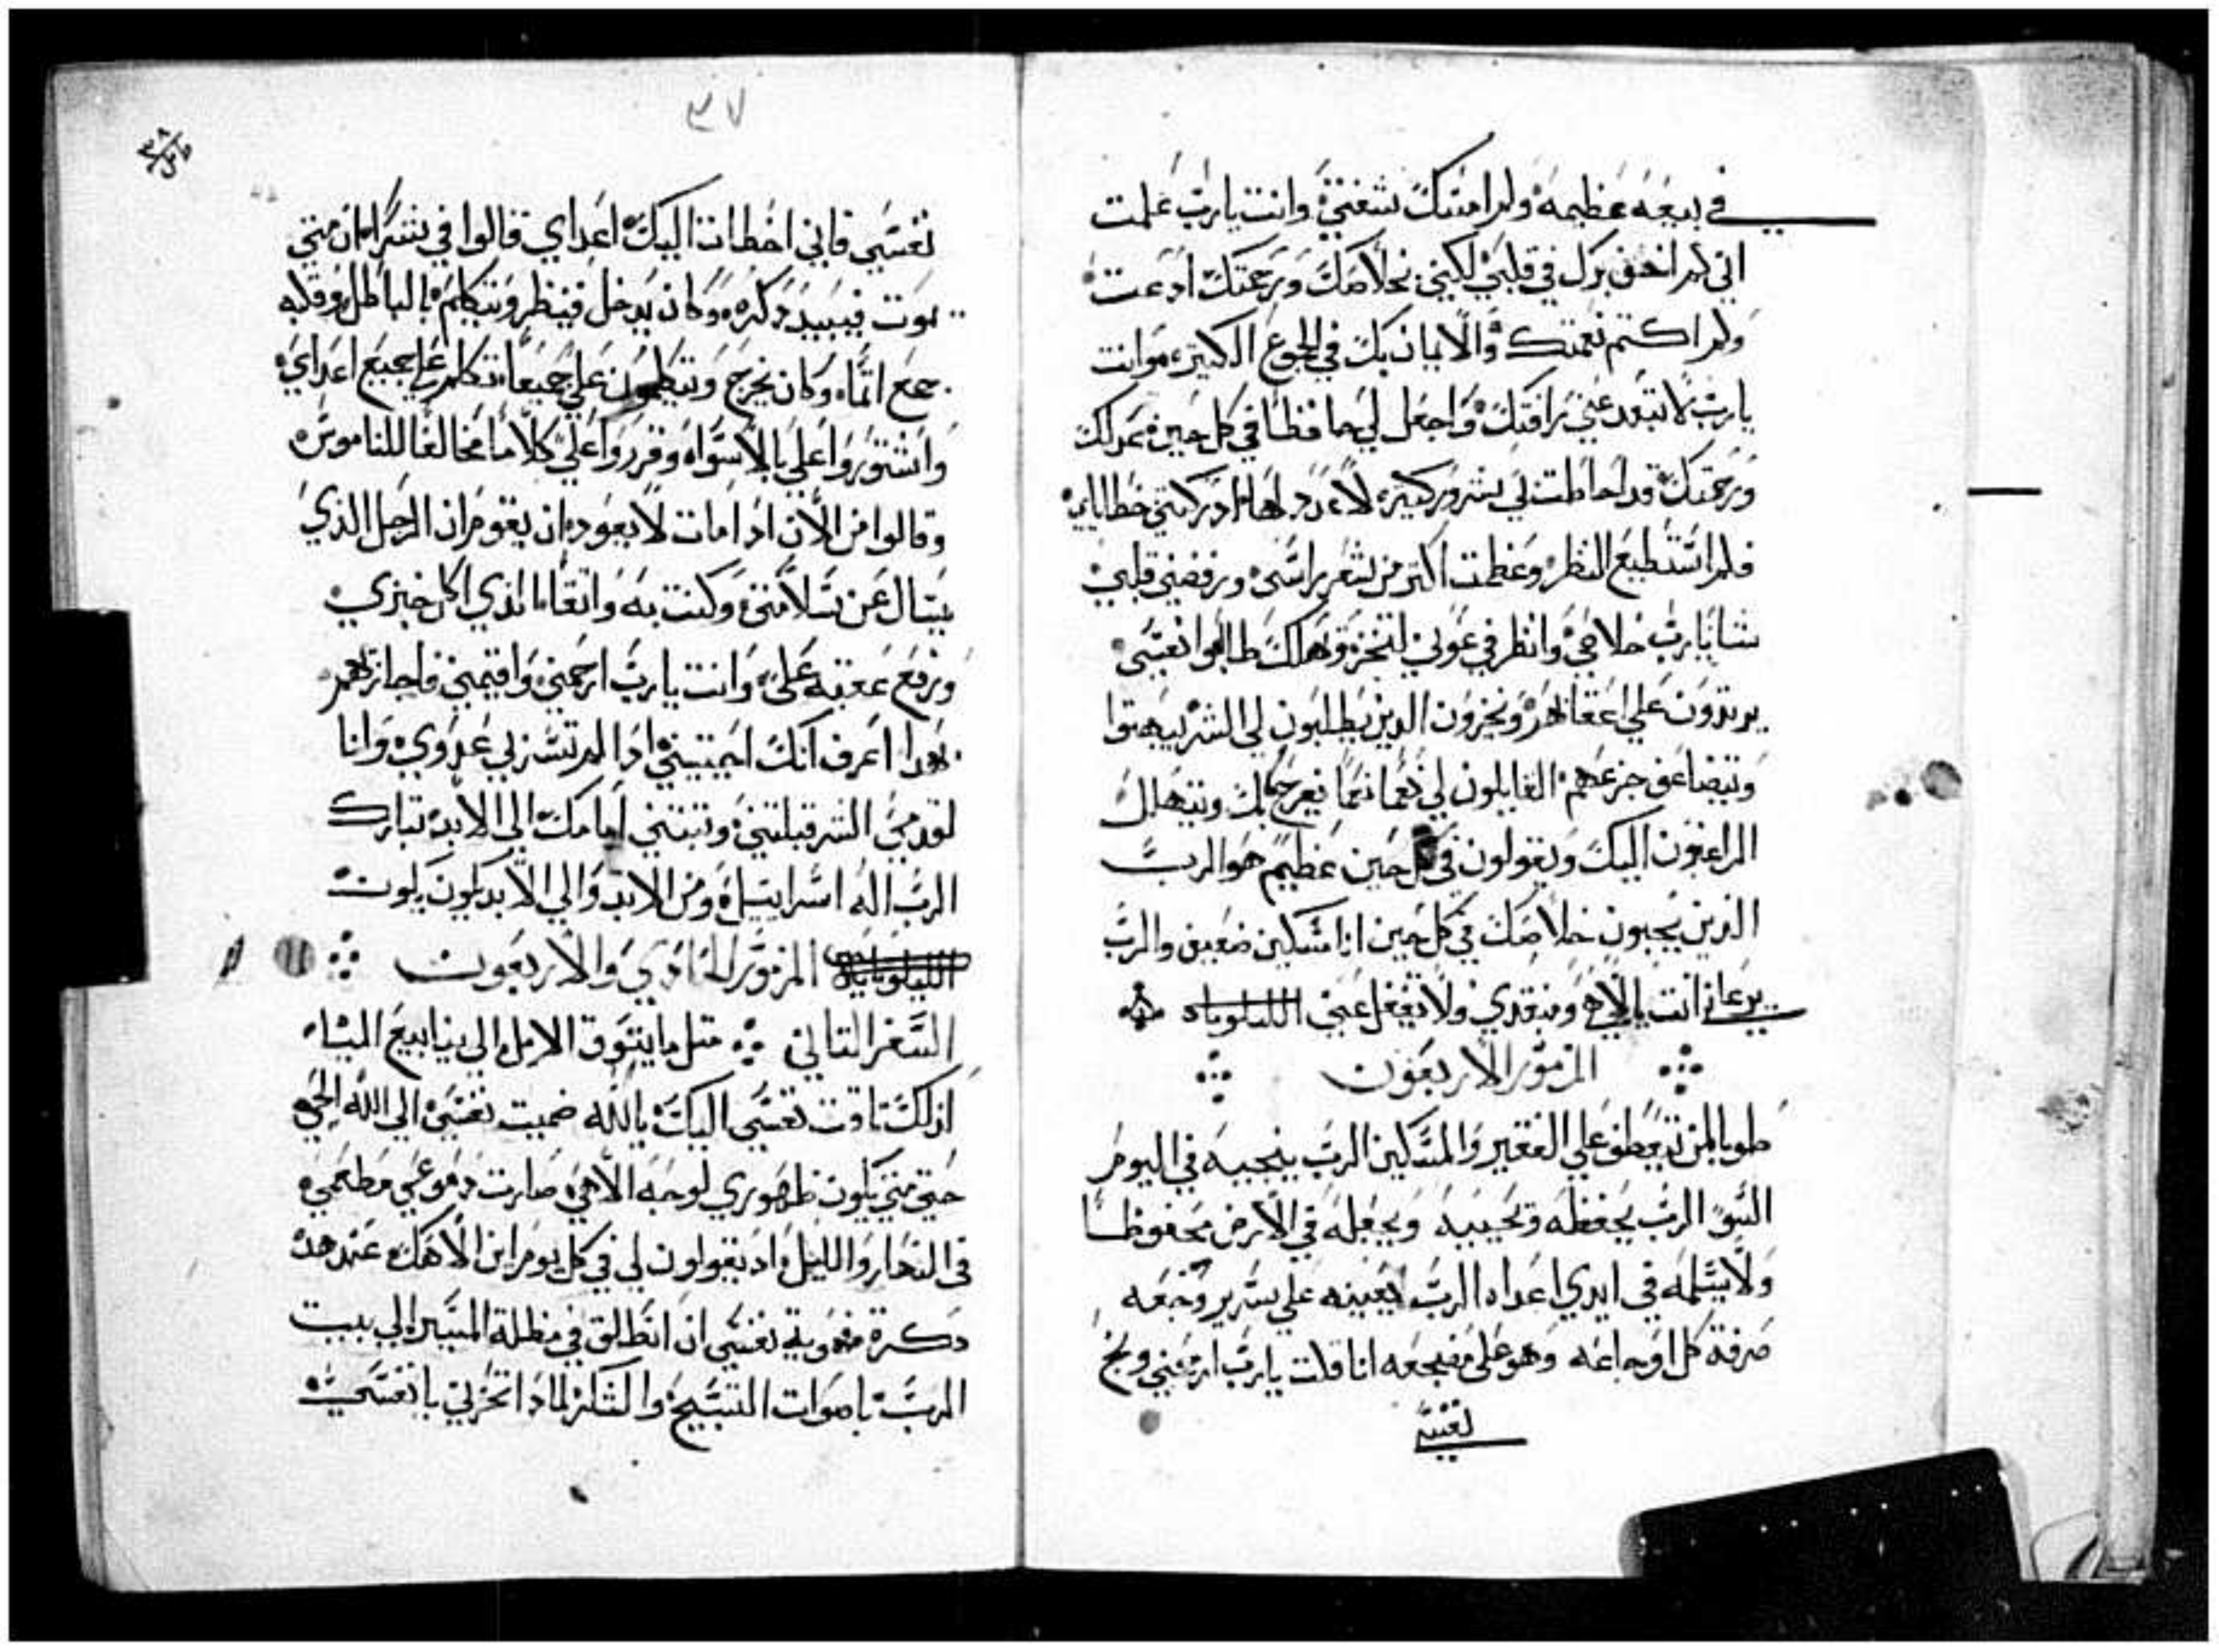 في بيعه عظيمه ولم امسك شفتي وانت يارب علمت
اني لم اخف برك في قلبي لكنني بخلاصك ورحمتك ادعت
ولم اكتم نعمتك والايمان بك في الجموع الكثيره وانت
يارب لا تبعد عني رافتك واجعل لي حافظا في كل حين عدلك
ورحمتك قد احاطت لي شرور كثيره لا عدد لها ادركتني خطاياي
فلم استطيع النظر وعظمت اكتر من شعر راسي ورفضني قلبي
شا يارب خلاصي وانظر في عوني لتخزة وتهلك طالبوا نفسي
يرتدون علي اعقابهم ويخزون الدين يطلبون لي الشر يبهتوا
وتيضاعف جزعهم القايلون لي نعما نعما يفرح بك ويتهلل
الراغبون اليك ويقولون في كل حين عظيم هو الرب
الذين يحبون خلاصك في كل حين انا مسكين ضعيف والرب
يرعاني انت يا الاهي ومنقدي ولا تغفل عني الليلوياه
المزمور الاربعون
طوبا لمن يتعطف علي الفقير والمسكين الرب ينجيه في اليوم
السو الرب يحفظه ويحييه ويجعله في الارض محفوظا
ولا يسلمه في ايدي اعداه الرب يعينه علي سرير وجعه
صرفة كل اوجاعه وهو على مضجعه انا قلت يارب ارحمني ونج
نفسي
٣٧
نفسي فاني اخطات اليك اعدا‌ي قالوا في شرا متي
يموت فيبيد ذكره وكان يدخل فينظر ويتكلم بالباطل وقلبه
جمع اتما وكان يخرج ويتكلمون علي جميعا تكلم علي جميع اعداي
واشتوروا علي بالاسواه وقرروا علي كلاما مخالفا للناموس
وقالوا من الان ادا مات لا يعود ان يقوم ان الرجل الذي
يسال عن سلامتي وكنت به واتقا الذي اكل خبزي
ورفع عقبه علي وانت يارب ارحمني واقيمني فاجازيهم
بهدا اعرف انك احببتني ادا لم تسر بي عدوي وانا
لعدمي الشر قبلتني وتبتني امامك الي الابد تبارك
الرب اله اسراييل من الابد والي الابد يكون يكون
الليلوياه المزمور الحادي والاربعون
السفر التاني متل ما يتوق الايل الي ينابيع المياه
كدلك تاقت نفسي اليك يا الله ضميت نفسي الي الله الحي
حتي متي يكون ظهوري لوجه الاهي صارت دموعي مطعمي
في النهار والليل اد يقولون لي في كل يوم اين الاهك عند هده
دكرة نفسي ان انطلق في مظلة الي بيت
الرب باصوات التسبيح والشكر لمادا تحزني يا نفسي